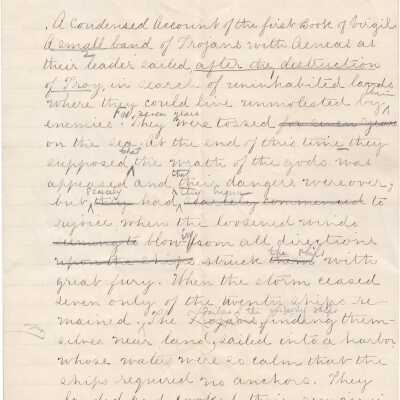 A Condensed Account of the first Book of Virgil
A small band of Trojans with Aeneas as
their leader sailed, after the destruction
of Troy, in search of uninhabited lands
where they could live unmolested by their
enemies. For seven years They were tossed for seven years
on the sea, at the end of this time they
supposed that the wrath of the gods was
appeased and that their dangers were over,
but they had scarcely commenced to
rejoice when the loosened winds
seeming to blow from all directions
upon the ships struck the ships with
great fury. When the storm ceased
seven only of the twenty ships re-
mained, The Trojans finding them-
selves near land, sailed into a harbor
whose waters were so calm that the
ships required no anchors. They